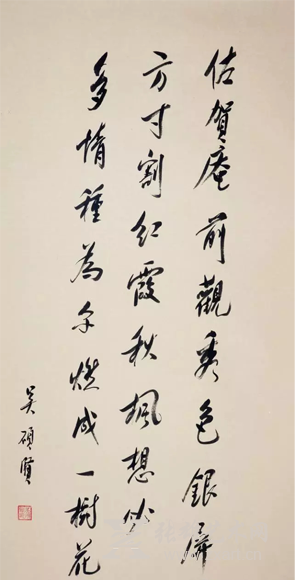 佑贺庵前觀秀色銀屏
方寸割紅霞秋楓想必
多情種為余燃成一樹花
吴碩賢